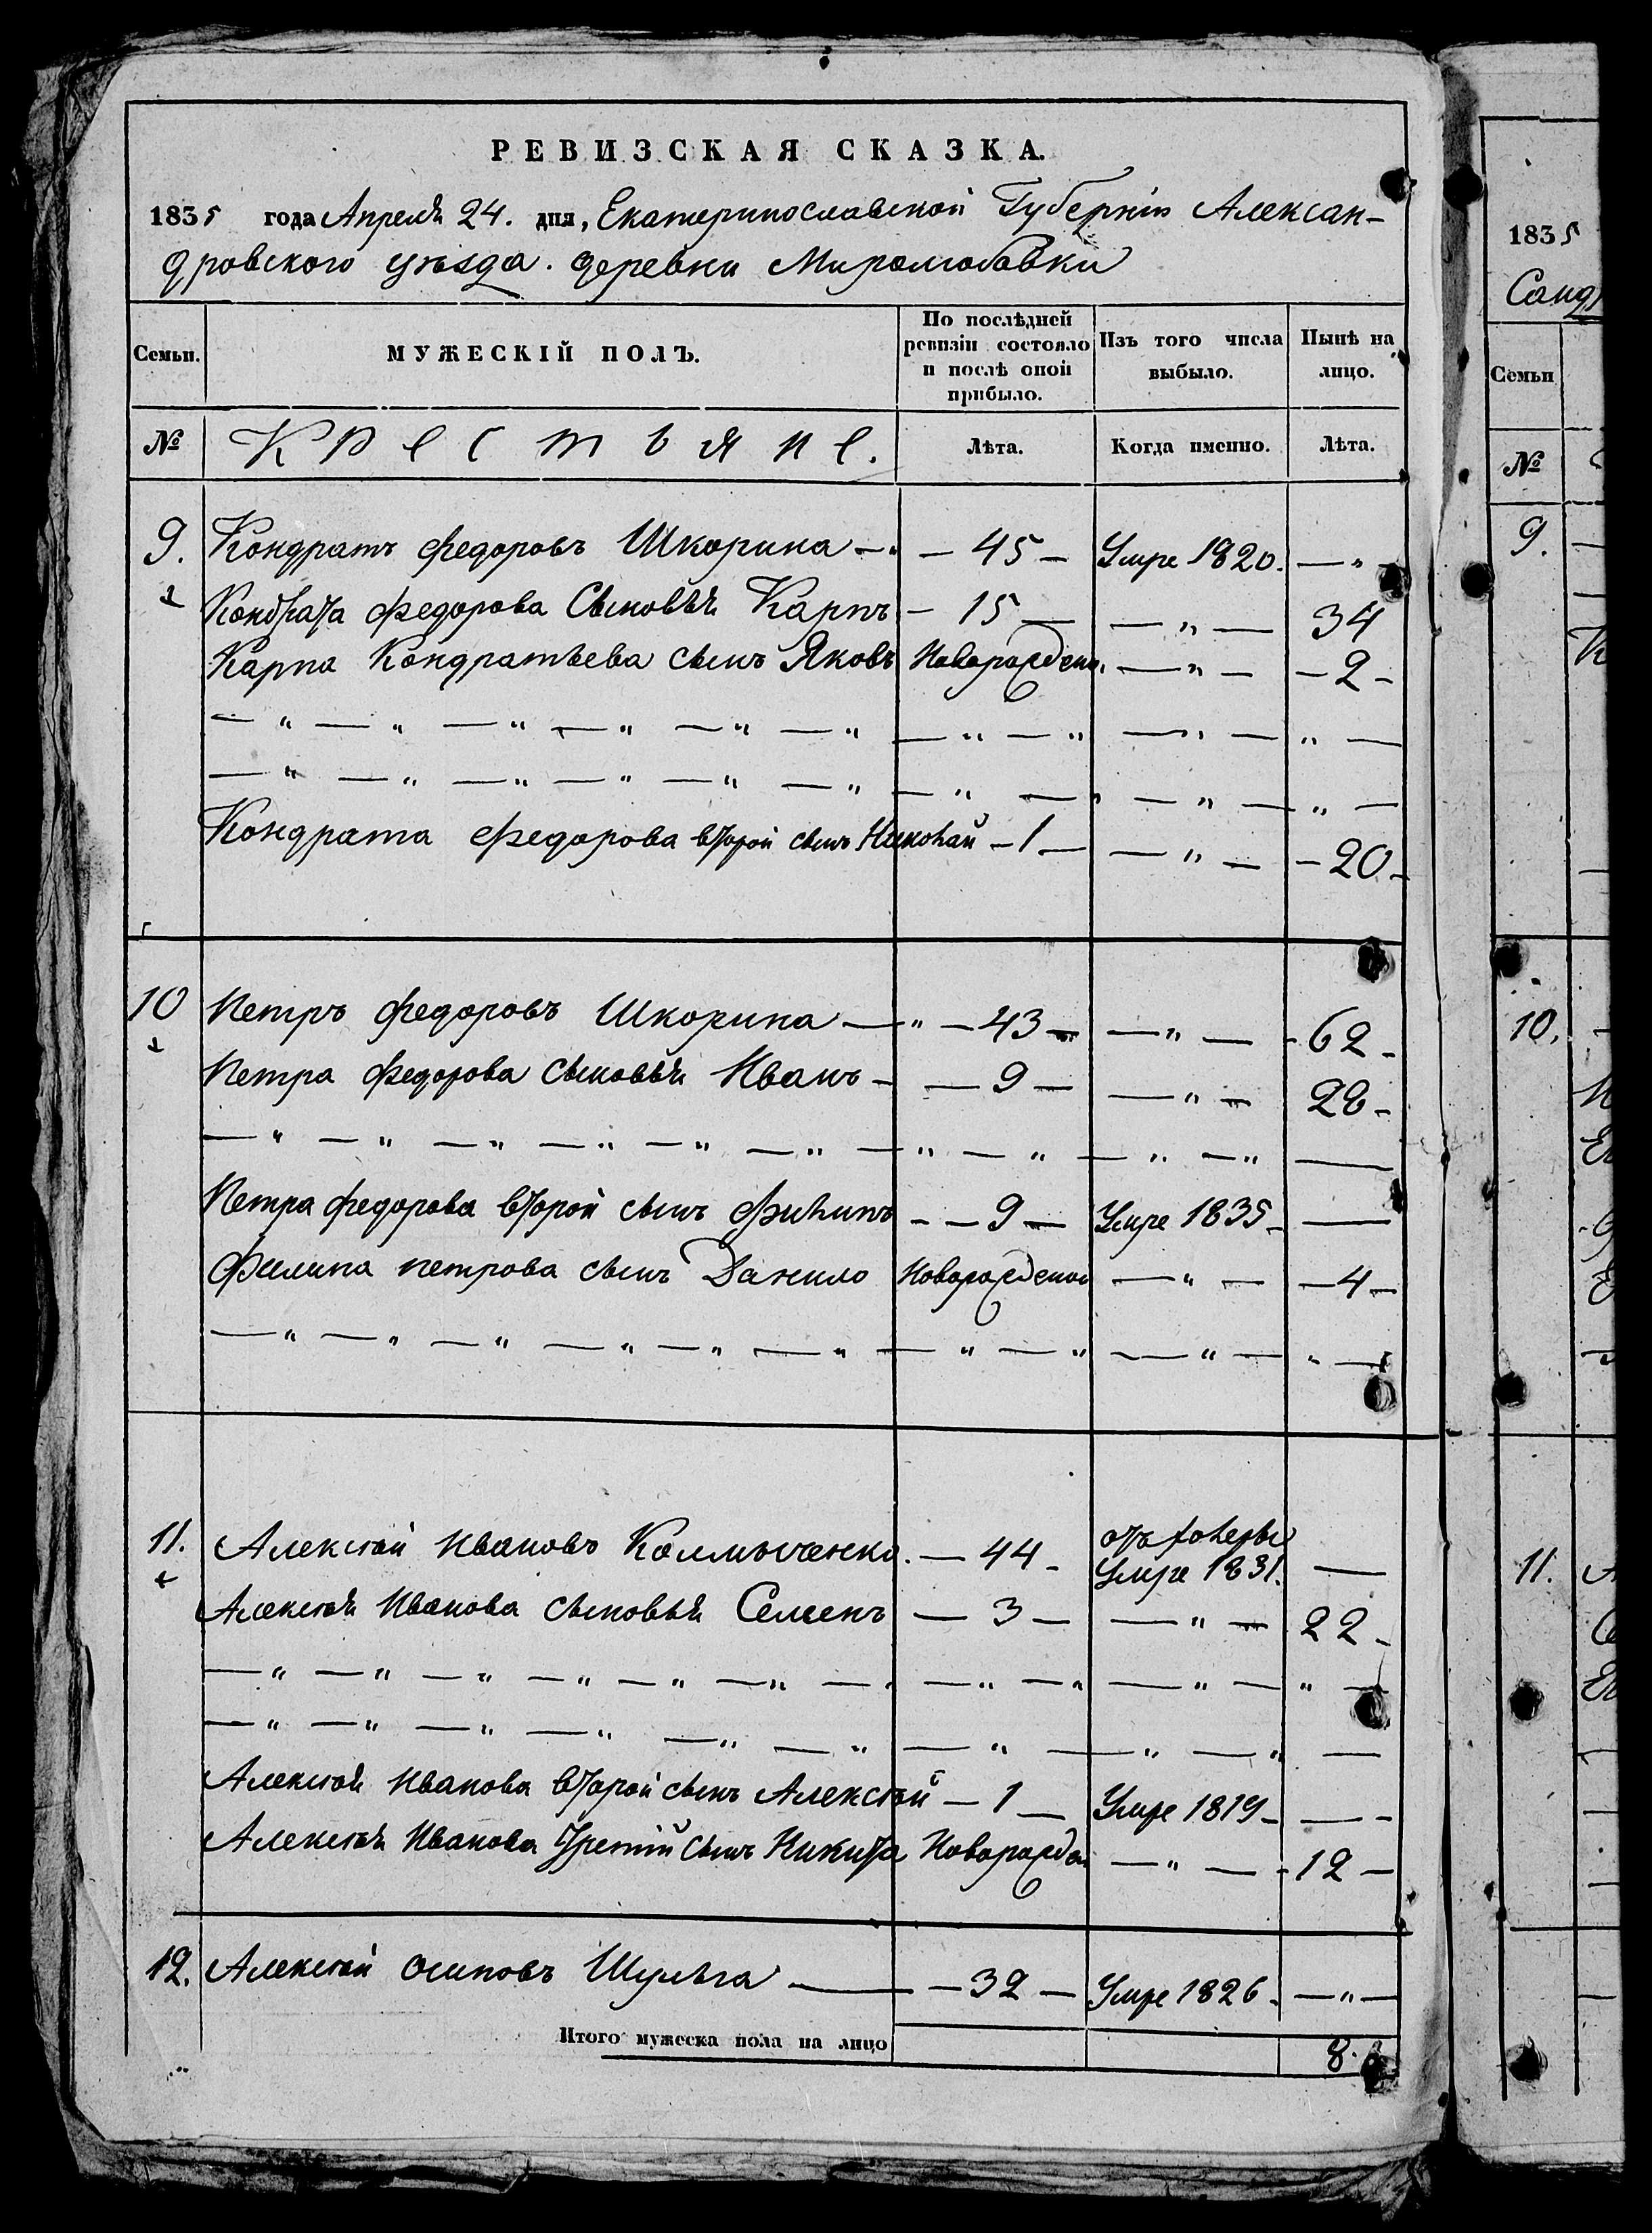 РЕВИЗСКАЯ СКАЗКА.
1835 года Апреля 24. дня, Екатеринославской Губерніи Алексан-
дровского уезда. деревни Миролюбовки
Семьи. МУЖЕСКІЙ ПОЛЪ. По послѣдней ревизіи состояло и послѣ оной прибыло. Изъ того числа выбыло. Нынѣ на лицо.
№ Крестьяне. Лѣта. Когда именно. Лѣта.
9. Кондратъ Федоровъ Шкорина — 45 — Умре 1820. — „
Кондрата Федорова Сыновья Карпъ — 15 — — „ — 34
Карпа Кондратьева сынъ Яковъ Новорожден. — „ — — 2 —
— „ — „ — „ — „ — „ — „ — „ — „ — „ — „ —
— „ — „ — „ — „ — „ — „ — „ — „ — „ — „ —
Кондрата Федорова второй сынъ Николай — 1 — — „ — — 20 —
10 Петръ Федоровъ Шкорина — „ — 43 — — „ — — 62 —
Петра Федорова Сыновья Иванъ — — 9 — — „ — 28 —
— „ — „ — „ — „ — „ — „ — „ — „ — „ — „ —
Петра Федорова второй сынъ Филипъ — — 9 — Умре 1835 — —
Филипа петрова сынъ Данило Новорожденой — „ — — 4 —
— „ — „ — „ — „ — „ — „ — „ — „ — „ — „ —
11. Алексѣй Ивановъ Колмыченко. — 44 — отъ холеры
Умре 1831. —
Алексѣя Иванова сыновья Семенъ — 3 — — „ — 22 —
— „ — „ — „ — „ — „ — „ — . — „ — „ — „ — „ —
— „ — „ — „ — „ — „ — „ — „ — „ — „ —
Алексѣя Иванова второй сынъ Алексѣй — 1 — Умре 1819 — — —
Алексѣя Иванова третій сынъ Никита Новорожден — „ — — 12 —
12. Алексѣй Осиповъ Шульга — — 32 — Умре 1826 — — „ —
Итого мужеска пола на лицо 8.
1835
Санд
Семьи
№
9.
10.
11.